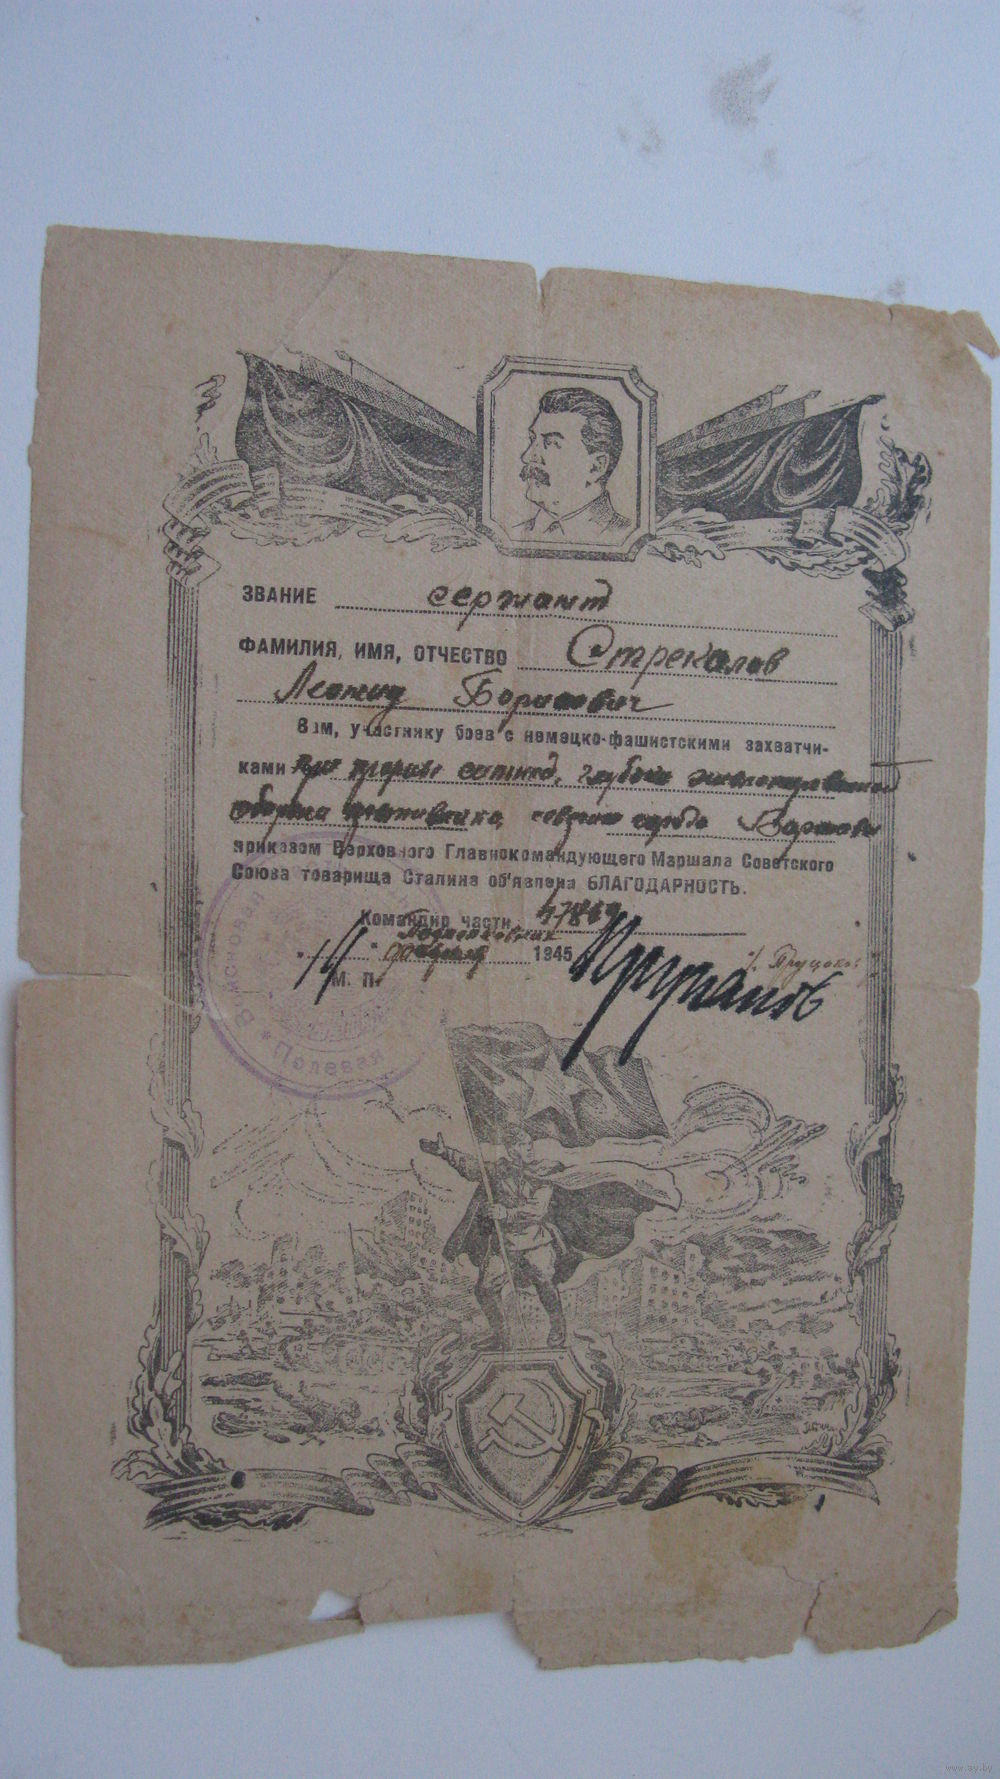 ЗВАНИЕ сержант
ФАМИЛИЯ, ИМЯ, ОТЧЕСТВО Стрекалов
Леонид Борисович
Вам, участнику боев с немецко-фашистскими захватчи-
ками при прорыве сильной, глубоко эшелонированной
обороны противника, города Варшавы
приказом Верховного Главнокомандующего Маршала Советского
Союза товарища Сталина об'явлена БЛАГОДАРНОСТЬ.
Командир части 47849
Подполковник
"14" 1945
М. П.
Войсковая
Полевая
www.ay.by